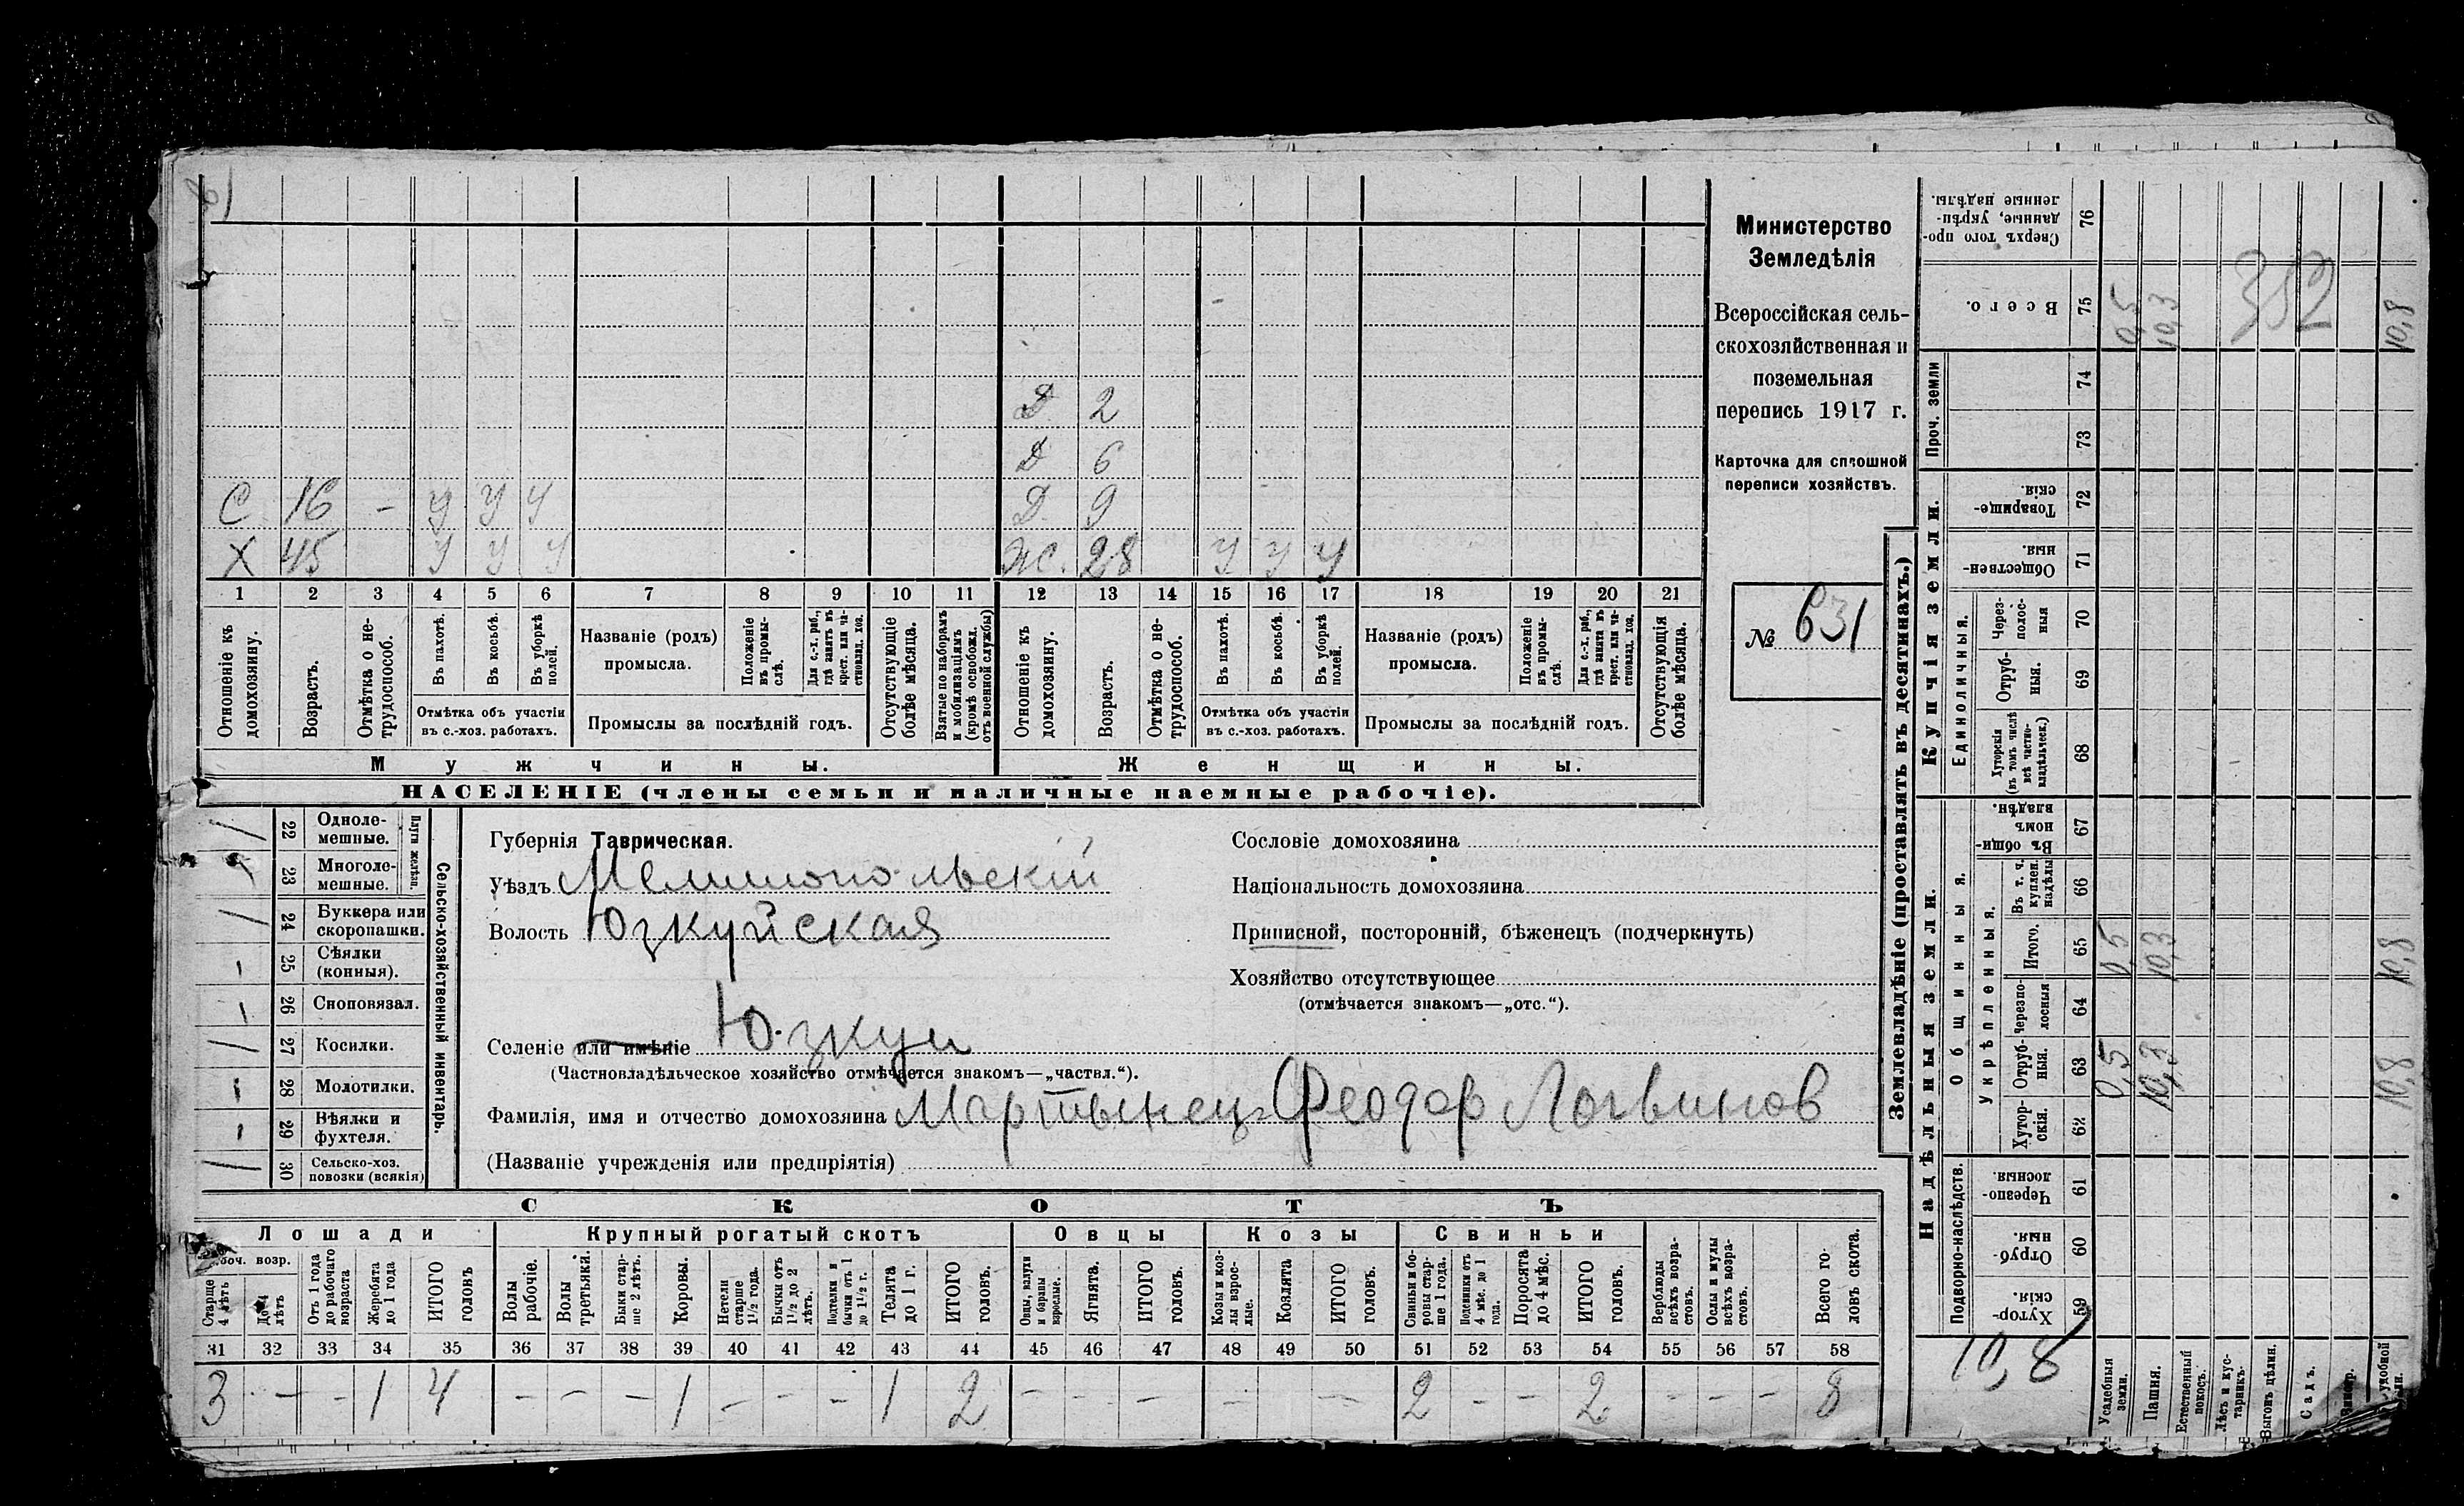 Д 2
Д 6
С 16 - У У У Д. 9
Х 45 У У У Ж. 28 У У У
1 2 3 4 5 6 7 8 9 10 11 12 13 14 15 16 17 18 19 20 21
Отношеніе къ домохозяину.
Возрастъ.
Отмѣтка о нетрудоспособ.
Въ пахотѣ.
Въ косьбѣ.
Въ уборкѣ полей.
Отмѣтка объ участіи
въ с.-хоз. работахъ.
Названіе (родъ)
промысла.
Положеніе въ промыслѣ.
Для с.-х. раб., гдѣ занятъ въ крест. или частновлад. хоз.
Промыслы за послѣдній годъ.
Отсутствующіе болѣе мѣсяца.
Взятые по наборамъ и мобилизаціямъ (кромѣ освобожд. отъ военной службы)
Отношеніе къ домохозяину.
Возрастъ.
Отмѣтка о нетрудоспособ.
Въ пахотѣ.
Въ косьбѣ.
Въ уборкѣ полей.
Отмѣтка объ участіи
въ с.-хоз. работахъ.
Названіе (родъ)
промысла.
Положеніе въ промыслѣ.
Для с.-х. раб., гдѣ занята въ крест. или частновлад. хоз.
Промыслы за послѣдній годъ.
Отсутствующія болѣе мѣсяца.
Мужчины. Женщины.
НАСЕЛЕНІЕ (члены семьи и наличные наемные рабочіе).
Министерство
Земледѣлія
Всероссійская сель-
скохозяйственная и
поземельная
перепись 1917 г.
Карточка для сплошной
переписи хозяйствъ.
№ 631
22 Одноле-
мешные.
23 Многоле-
мешные.
Плуги желѣзн.
24 Буккера или
скоропашки.
25 Сѣялки
(конныя).
26 Сноповязал.
27 Косилки.
28 Молотилки.
29 Вѣялки и
фухтеля.
30 Сельско-хоз.
повозки (всякія)
Сельско-хозяйственный инвентарь.
Губернія Таврическая.
Уѣздъ Мелитопольскій
Волость Юзкуйская
Селеніе или имѣніе Юзкуи
(Частновладѣльческое хозяйство отмѣчается знакомъ—„частвл.“).
Фамилія, имя и отчество домохозяина Мартынец Феодор Логвинов
(Названіе учрежденія или предпріятія)
Сословіе домохозяина
Національность домохозяина
Приписной, посторонній, бѣженецъ (подчеркнуть)
Хозяйство отсутствующее
(отмѣчается знакомъ—„отс.“).
СКОТЪ
Лошади Крупный рогатый скотъ Овцы Козы Свиньи
Старше 4 лѣтъ
До 4 лѣтъ
Отъ 1 года до рабочаго возраста
Жеребята до 1 года
ИТОГО головъ
Волы рабочіе.
Волы третьяки.
Быки старше 2 лѣтъ.
Коровы.
Нетели старше 1½ года.
Бычки отъ 1½ до 2 лѣтъ.
Подтелки и бычки отъ 1 до 1½ г.
Телята до 1 г.
ИТОГО головъ.
Овцы, валухи и бараны взрослые.
Ягнята.
ИТОГО головъ.
Козы и козлы взрослые.
Козлята
ИТОГО головъ.
Свиньи и боровы старше 1 года.
Подсвинки отъ 4 мѣс. до 1 года.
Поросята до 4 мѣс.
ИТОГО головъ.
Верблюды всѣхъ возрастовъ.
Ослы и мулы всѣхъ возрастовъ.
Всего головъ скота.
31 32 33 34 35 36 37 38 39 40 41 42 43 44 45 46 47 48 49 50 51 52 53 54 55 56 57 58
3 - - 1 4 - - - 1 - - - 1 2 - - - - - 2 - - 2 - - - 8
Землевладѣніе (проставлять въ десятинахъ.)
Надѣльныя земли. Купчія земли. Проч. земли
Подворно-наслѣдств.
Общинныя.
Укрѣпленныя.
Единоличныя.
59 Хуторскія.
60 Отрубныя.
61 Черезполосныя.
62 Хуторскія.
63 Отрубныя. 0,5 10,3 10,8
64 Черезполосныя
65 Итого. 0,5 10,3 10,8
66 Въ т. ч. куплен. надѣлы
67 Въ общинномъ владѣн.
68 Хуторскія (въ томъ числѣ всѣ частновладѣльческ.)
69 Отрубныя.
70 Черезполосныя
71 Общественныя.
72 Товарищескія.
73
74
75 Всего. 0,5 10,3 10,8
76 Сверхъ того проданные, укрѣпленные надѣлы.
352
10,8
Усадебныя земли.
Пашня.
Естественный покосъ.
Лѣсъ и кустарникъ.
Выгонъ цѣлин.
Садъ.